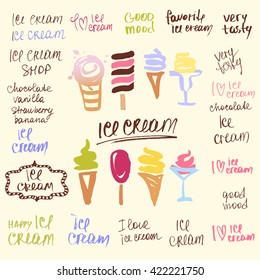 ice cream
ice cream
I ♡ ice cream
GOOD mood
favorite ice cream
very tasty
ice cream SHOP
chocolate
vanilla
strawberry
banana
ice cream
very tasty
I ♡ ice cream
chocolate
ice cream
ICE CREAM
I ♡ ice cream
ice cream
good mood
HAPPY ice cream
ice cream
I love ice cream
ice cream
I ♡ ice cream
shutterstock
IMAGE ID: 422221750
www.shutterstock.com